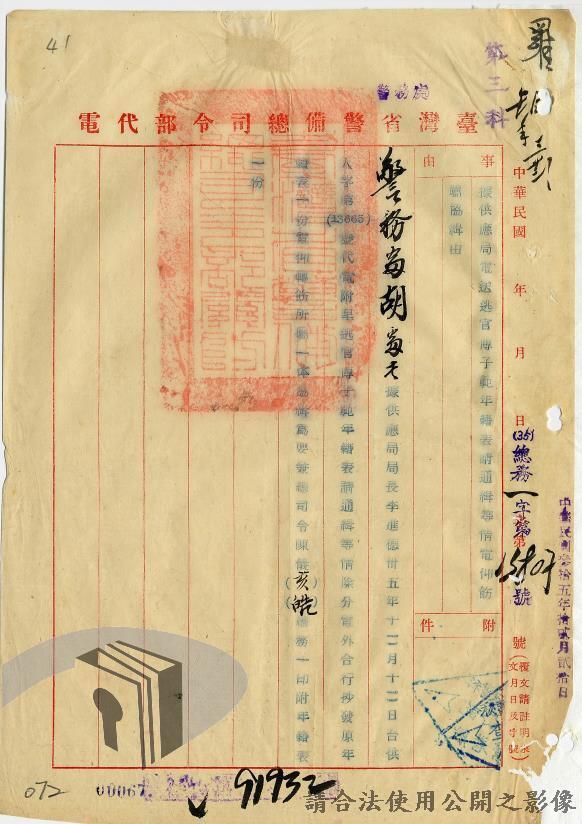 41
第三科
警務處
臺灣省警備總司令部代電
中華民國　年　月　日
(35)總務一字第
號
中華民國叁拾五年拾貳月貳拾日
覆文請註明來文月日及字號
事由
據供應局電送逃官傅子範年籍表請通緝等情電仰飭屬協緝由
附件
警務處胡處長
據供應局局長李進德卅五年十二月十二日台供
人字第(13665)號代電附呈逃官傅子範年籍表請通緝等情除分電外合行抄發原年
籍表一份電仰轉飭所屬一体協緝為要兼總司令陳儀(亥皓)總務一印附年籍表
一份
072
00067
91932
請合法使用公開之影像